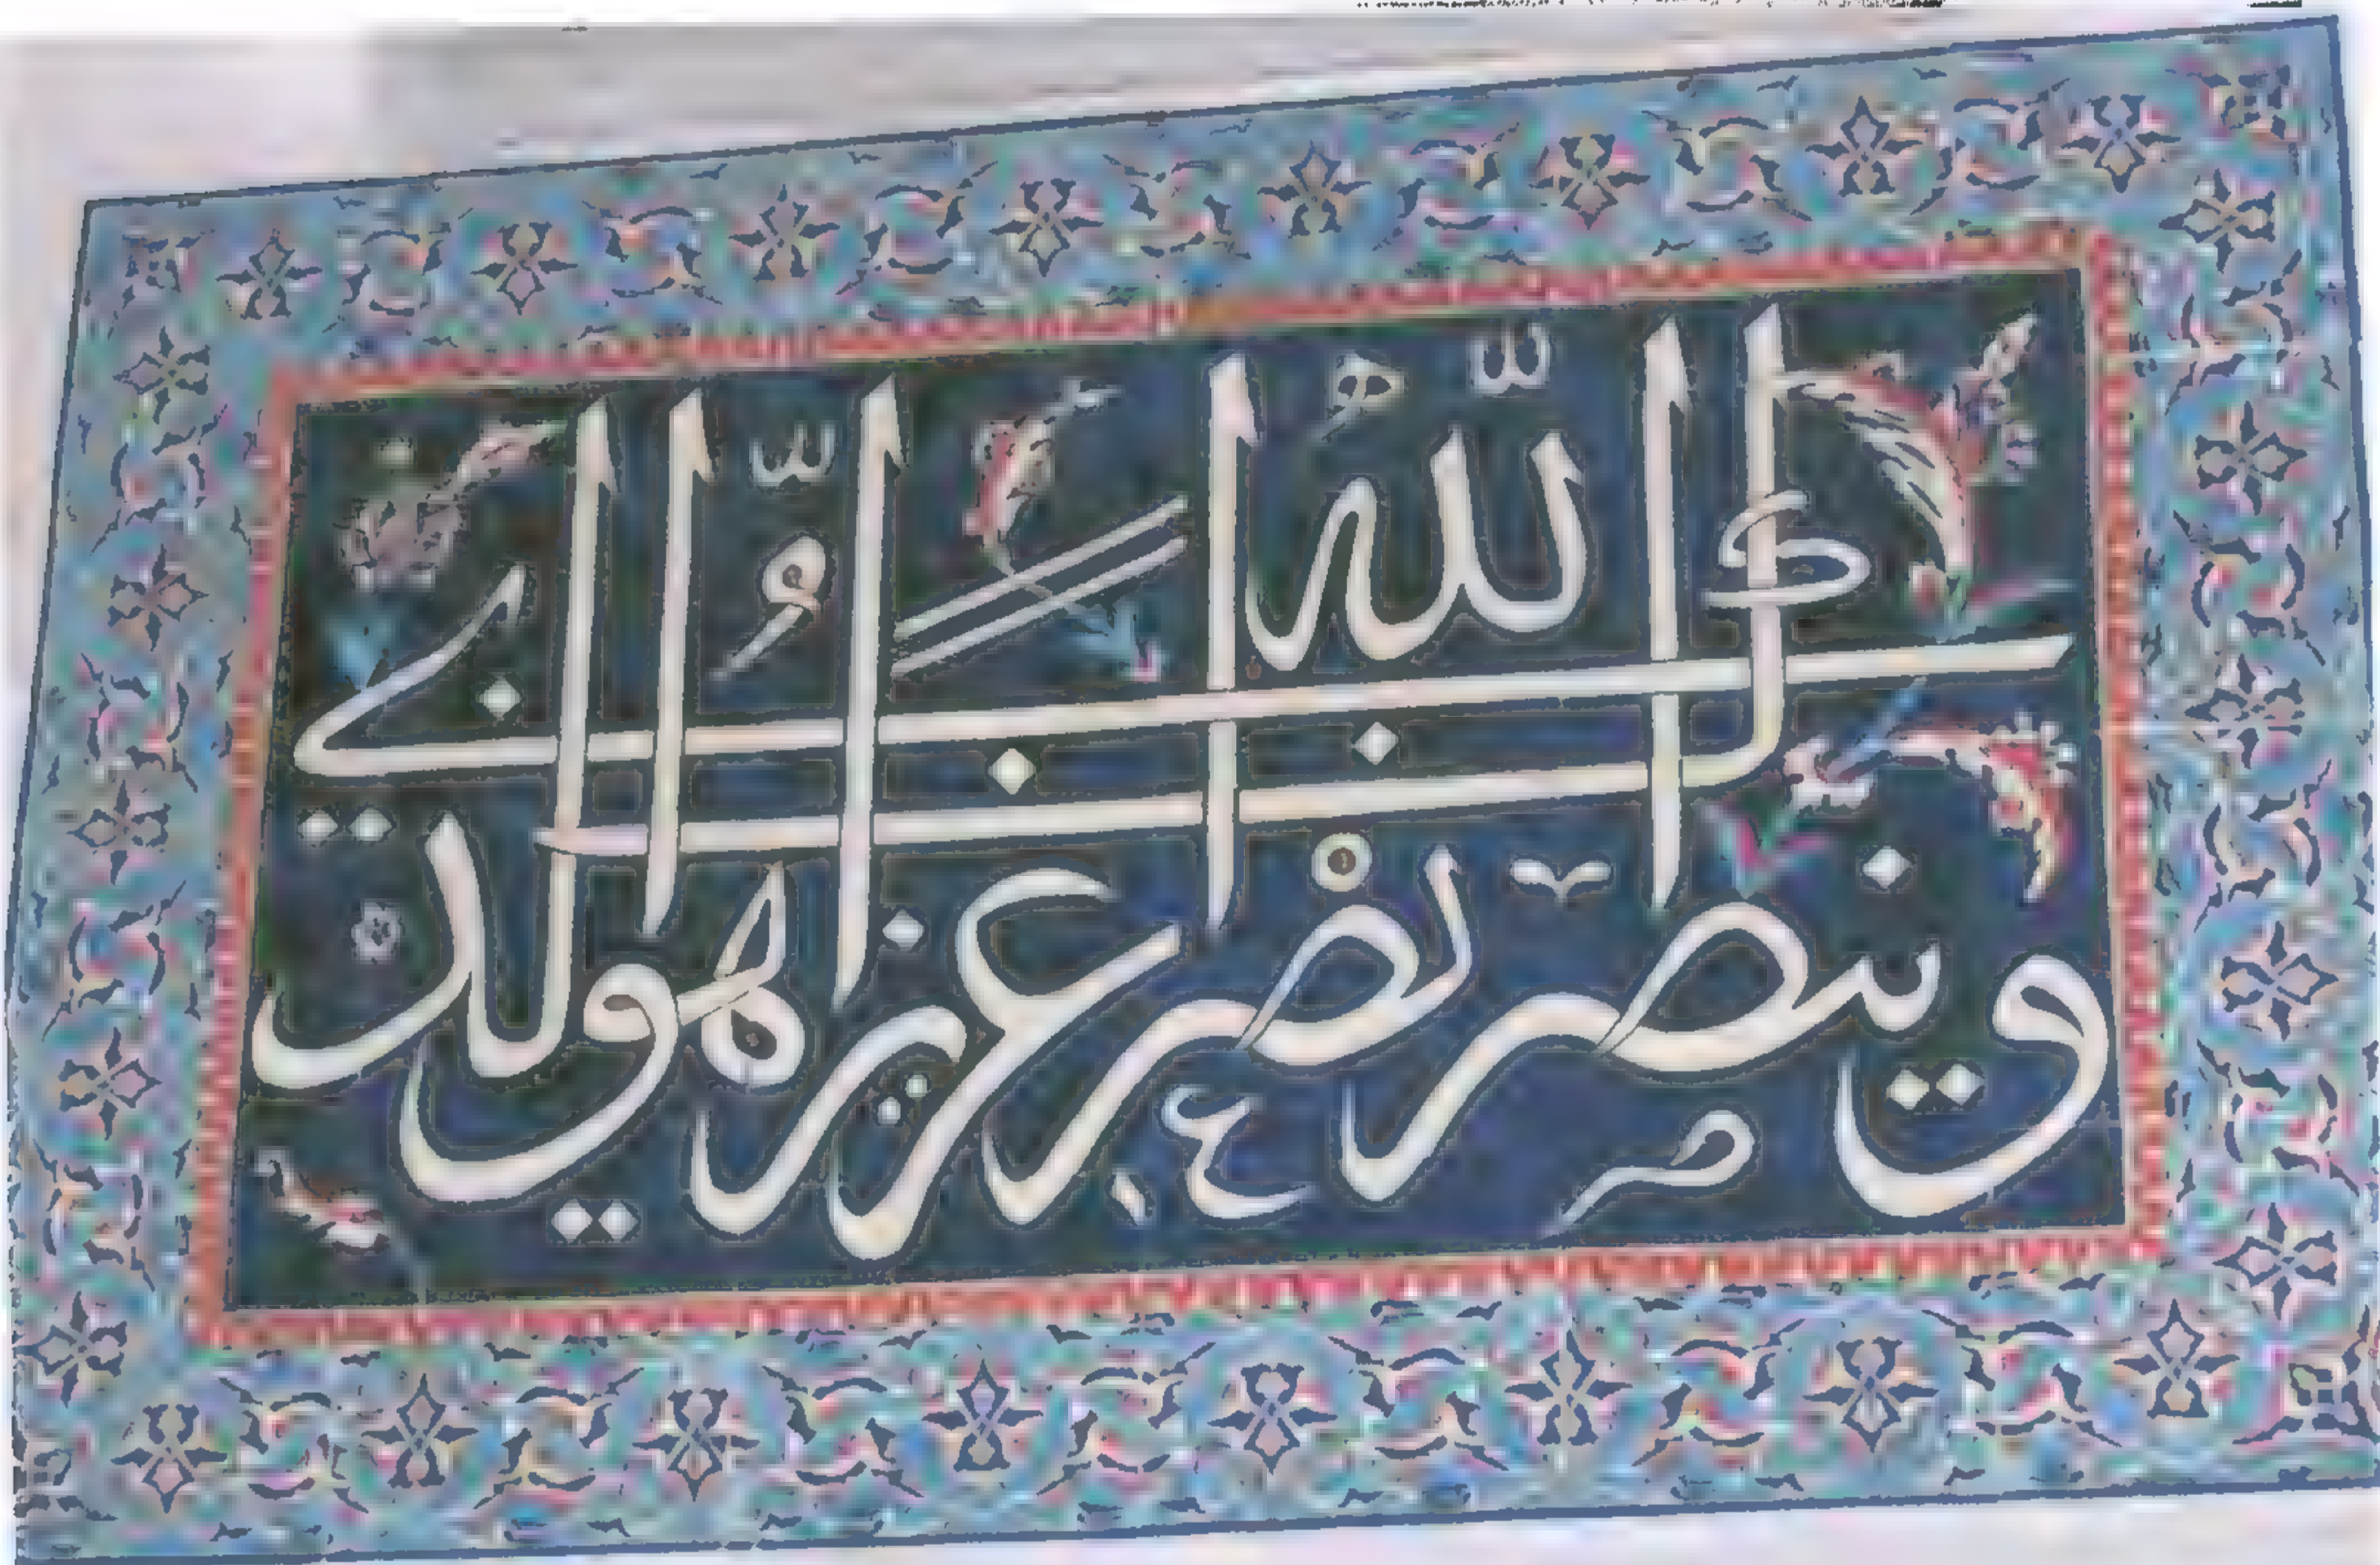 وينصرك الله نصرا عزيزا هو الذي